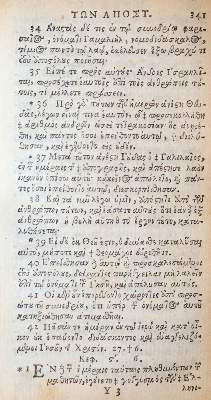 ΤΩΝ ΑΠΟΣΤ. 341
34 Ἀναστὰς δέ τις ἐν τῷ συνεδρίῳ φαρι-
σαῖος, ὀνόματι Γαμαλιὴλ, νομοδιδάσκαλος,
τίμιος παντὶ τῷ λαῷ, ἐκέλευσεν ἔξω βραχύ τι
τοὺς ἀποστόλους ποιῆσαι.
35 Εἶπέ τε πρὸς αὐτούς· Ἄνδρες Ἰσραηλῖ-
ται, προσέχετε ἑαυτοῖς ἐπὶ τοῖς ἀνθρώποις τού-
τοις, τί μέλλετε πράσσειν.
* 36 Πρὸ γὰρ τούτων τῶν ἡμερῶν ἀνέστη Θευ-
δᾶς, λέγων εἶναί τινα ἑαυτὸν, ᾧ προσεκολλήθη
ἀριθμὸς ἀνδρῶν ὡσεὶ τετρακοσίων· ὃς ἀνῃρέ-
θη, καὶ πάντες ὅσοι ἐπείθοντο αὐτῷ, διελύθη-
σαν, καὶ ἐγένοντο εἰς οὐδέν.
* 37 Μετὰ τοῦτον ἀνέστη Ἰούδας ὁ Γαλιλαῖος,
ἐν ταῖς ἡμέραις τῆς ἀπογραφῆς, καὶ ἀπέστησε λαὸν
ἱκανὸν ὀπίσω αὐτοῦ· κἀκεῖνος ἀπώλετο, καὶ πάν-
τες ὅσοι ἐπείθοντο αὐτῷ, διεσκορπίσθησαν.
38 Καὶ τὰ νῦν λέγω ὑμῖν, ἀπόστητε ἀπὸ τῶν
ἀνθρώπων τούτων, καὶ ἐάσατε αὐτούς· ὅτι ἐὰν ᾖ ἐξ
ἀνθρώπων ἡ βουλὴ αὕτη ἢ τὸ ἔργον τοῦτο, κατα-
λυθήσεται·
* 39 Εἰ δὲ ἐκ Θεοῦ ἐστιν, οὐ δύνασθε καταλῦσαι
αὐτὸ, μήποτε καὶ θεομάχοι εὑρεθῆτε.
40 Ἐπείσθησαν δὲ αὐτῷ· καὶ προσκαλεσάμενοι
τοὺς ἀποστόλους, δείραντες παρήγγειλαν μὴ λαλεῖν
ἐπὶ τῷ ὀνόματι τοῦ Ἰησοῦ, καὶ ἀπέλυσαν αὐτούς.
41 Οἱ μὲν οὖν ἐπορεύοντο χαίροντες ἀπὸ προσώ-
που τοῦ συνεδρίου, ὅτι ὑπὲρ τοῦ ὀνόματος αὐτοῦ
κατηξιώθησαν ἀτιμασθῆναι.
42 Πᾶσάν τε ἡμέραν ἐν τῷ ἱερῷ καὶ κατ' οἶ-
κον οὐκ ἐπαύοντο διδάσκοντες καὶ εὐαγγελιζό-
μενοι Ἰησοῦν τὸν Χριστόν. 27. † 6.
Κεφ. ϛʹ. 6.
* 1 ΕΝ δὲ ταῖς ἡμέραις ταύταις πληθυνόντων τῶν
μαθητῶν, ἐγένετο γογγυσμὸς τῶν Ἑλ-
Y 3 λην-